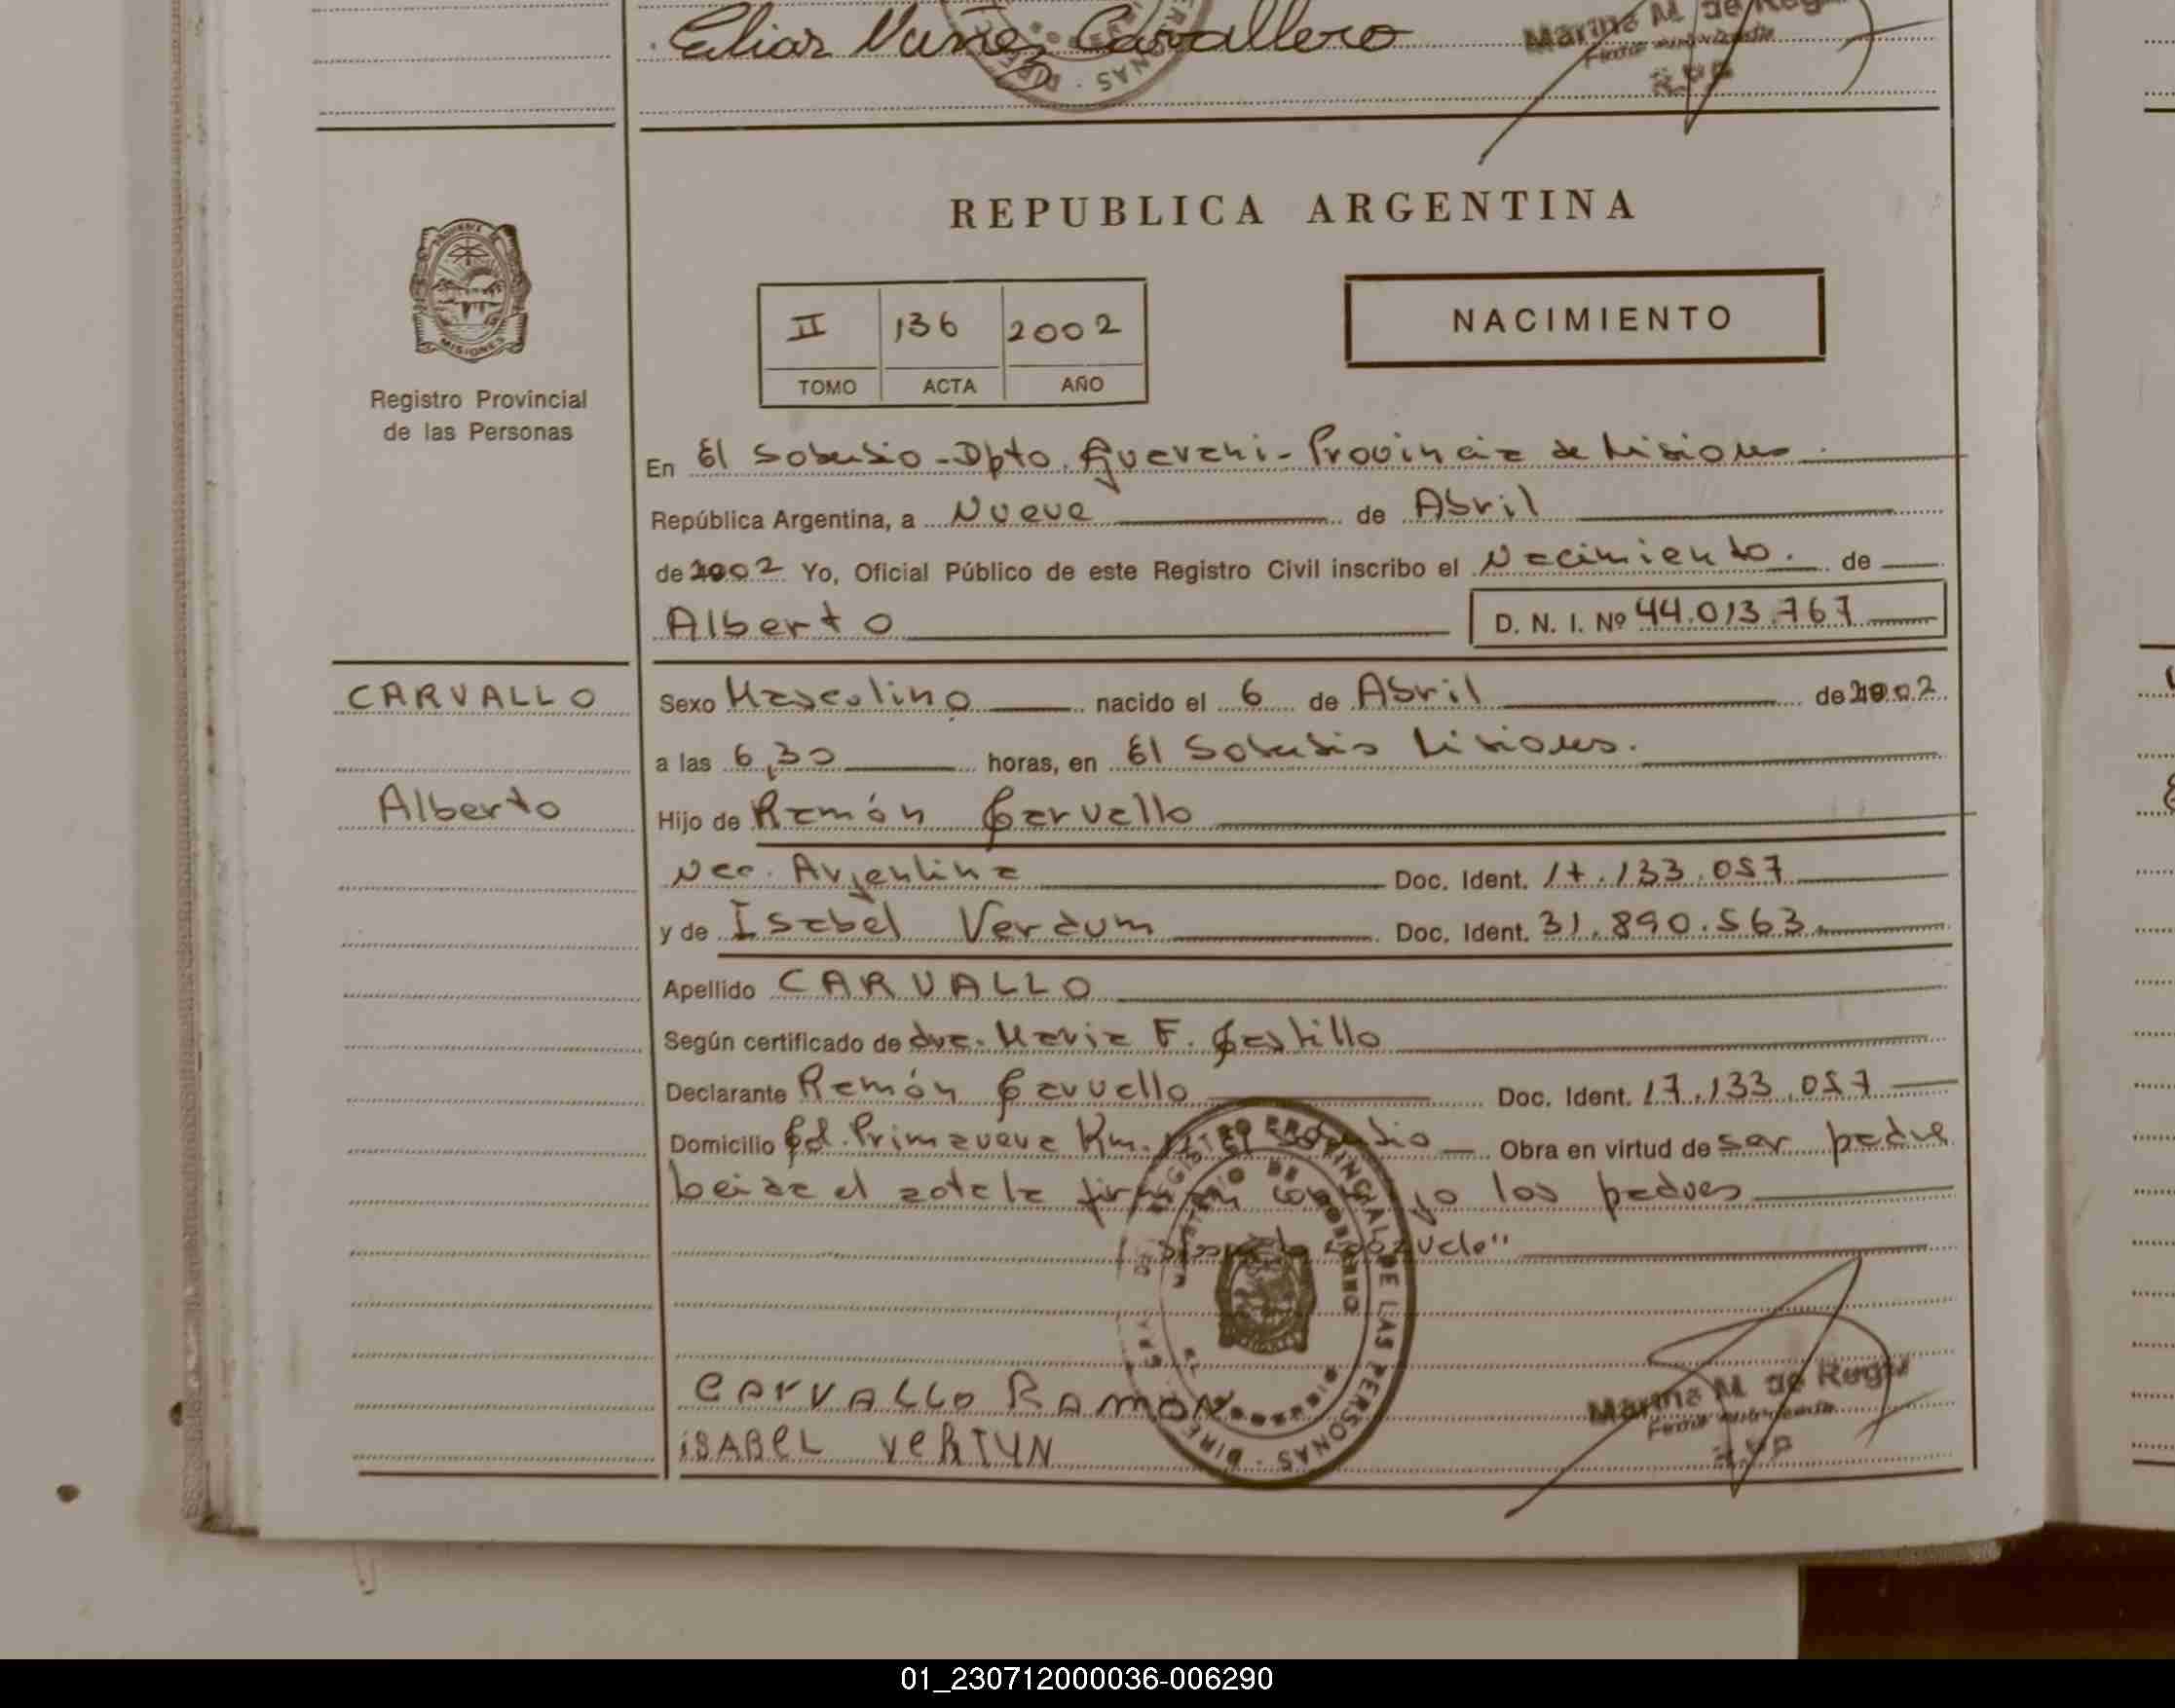 Elias Nuñez Cavallero
Marina M. de Regu
REPUBLICA ARGENTINA
II 136 2002
TOMO ACTA AÑO
NACIMIENTO
MISIONES
Registro Provincial
de las Personas
En El Soberbio - Dpto. Guarani - Provincia de Misiones
República Argentina, a Nueve de Abril
de 2002 Yo, Oficial Público de este Registro Civil inscribo el Nacimiento. de
Alberto D. N. I. Nº 44.013.767
CARVALLO Sexo Masculino nacido el 6 de Abril de 2002
a las 6,30 horas, en El Soberbio Misiones.
Alberto Hijo de Ramón Carvallo
Nac. Argentina Doc. Ident. 17.133.057
y de Isabel Verdum Doc. Ident. 31.890.563
Apellido CARVALLO
Según certificado de dra. Maria F. Castillo
Declarante Ramón Carvallo Doc. Ident. 17.133.057
Domicilio Col. Primavera Km. El Soberbio Obra en virtud de ser padre
leida el acta la firman yo los padres
REGISTRO PROVINCIAL DE LAS PERSONAS
MINISTERIO DE GOBIERNO
CARVALLO RAMON
Marina M. de Regu
iSABEL VERTUN
01_230712000036-006290